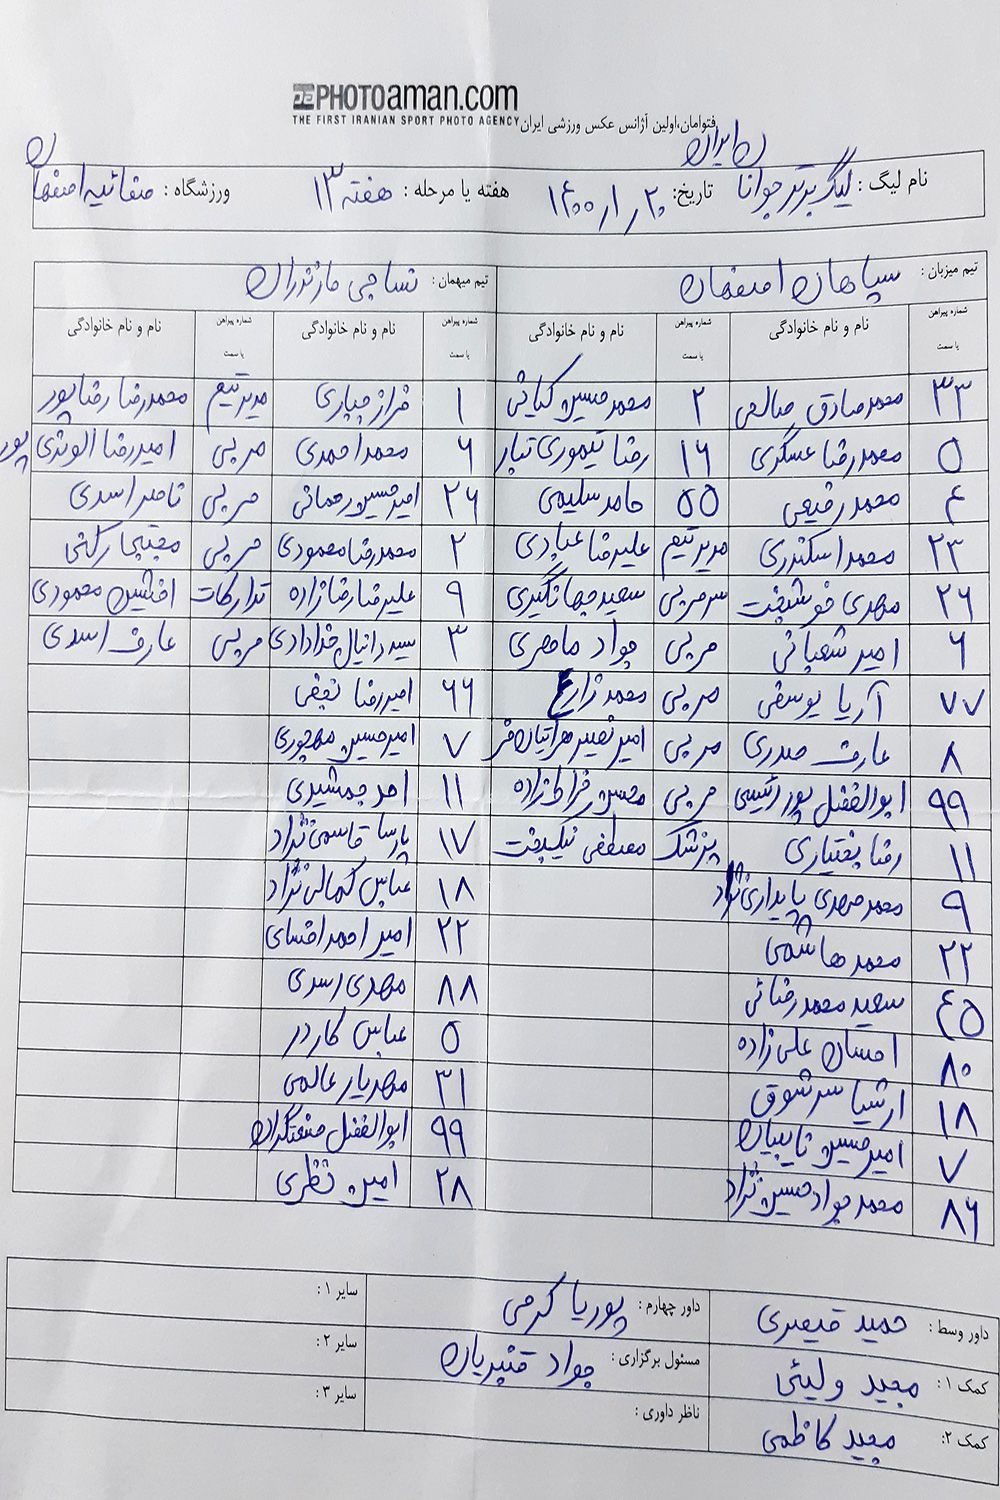 PHOTOaman.com
THE FIRST IRANIAN SPORT PHOTO AGENCY فتوامان،اولین آژانس عکس ورزشی ایران
نام لیگ : لیگ برتر جوانان ایران تاریخ: ۱۴۰۰/۱/۲۰ هفته یا مرحله : هفته ۱۳ ورزشگاه : صفائیه اصفهان
تیم میزبان : سپاهان اصفهان تیم میهمان : نساجی مازندران
شماره پیراهن یا سمت نام و نام خانوادگی شماره پیراهن یا سمت نام و نام خانوادگی شماره پیراهن یا سمت نام و نام خانوادگی شماره پیراهن یا سمت نام و نام خانوادگی
۳۳ محمدصادق صالحی ۲ محمدحسین کیانی ۱ فراز جباری مدیرتیم محمدرضا رضاپور
۵ محمدرضا عسگری ۱۶ رضا تیموری تبار ۶ محمد احمدی مربی امیررضا الوندی پور
۴ محمد رفیعی ۵۵ حامد سلیمی ۲۶ امیرحسین رحمانی مربی ناصر اسدی
۲۳ محمد اسکندری مدیرتیم علیرضا عبادی ۲ محمدرضا محمودی مربی مجتبی ارکنی
۲۶ مهدی خوشبخت سرمربی سعید جهانگیری ۹ علیرضا رضازاده تدارکات افشین محمودی
۶ امیر شعبانی مربی جواد ماهری ۳ سیددانیال خدادادی مربی عارف اسدی
۷۷ آریا یوسفی مربی محمد زارع ۶۶ امیررضا نجفی
۸ عارف صدری مربی امیرنصیر هراتیان فر ۷ امیرحسین مهجوری
۹۹ ابوالفضل پوررئیسی مربی محسن خراط زاده ۱۱ احد جمشیدی
۱۱ رضا بختیاری پزشک مصطفی نیکبخت ۱۷ پارسا قاسمی نژاد
۹ محمدمهدی پایداری نژاد ۱۸ عباس کمالی نژاد
۲۲ محمد هاشمی ۲۲ امیر احمد افضای
۴۵ سعید محمدرضائی ۸۸ مهدی اسدی
۸۰ احسان علی زاده ۵ عباس کاردر
۱۸ ارشیا سرشوق ۳۱ مهریار عالمی
۷ امیرحسین نایبیان ۹۹ ابوالفضل صنعتگران
۸۶ محمدجواد حسین نژاد ۲۸ امین نظری
داور وسط : حمید قیصری داور چهارم : پوریا کرمی سایر ۱ :
کمک ۱ : مجید ولیئی مسئول برگزاری : جواد قنبریان سایر ۲ :
کمک ۲: مجید کاظمی ناظر داوری : سایر ۳ :